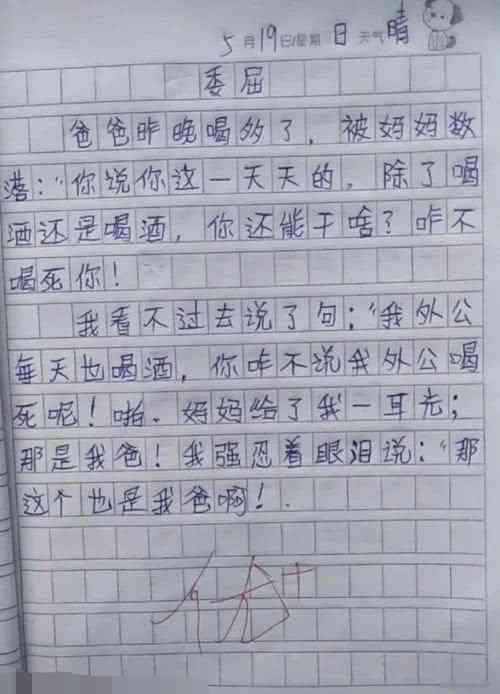 5月19日/星期日 天气晴
委屈
爸爸昨晚喝多了，被妈妈数
落："你说你这一天天的，除了喝
酒还是喝酒，你还能干啥？咋不
喝死你！
我看不过去说了句："我外公
每天也喝酒，你咋不说我外公喝
死呢！啪．妈妈给了我一耳光；
那是我爸！我强忍着眼泪说："那
这个也是我爸啊！．
优+